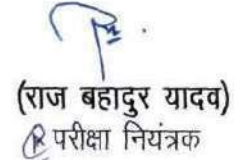 (राज बहादुर यादव)
परीक्षा नियंत्रक